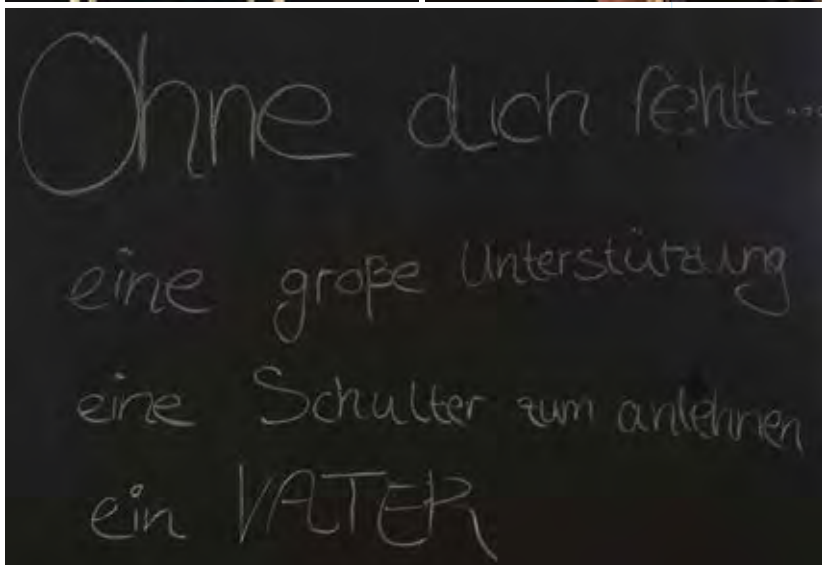 Ohne dich fehlt...
eine große Unterstützung
eine Schulter zum anlehnen
ein VATER